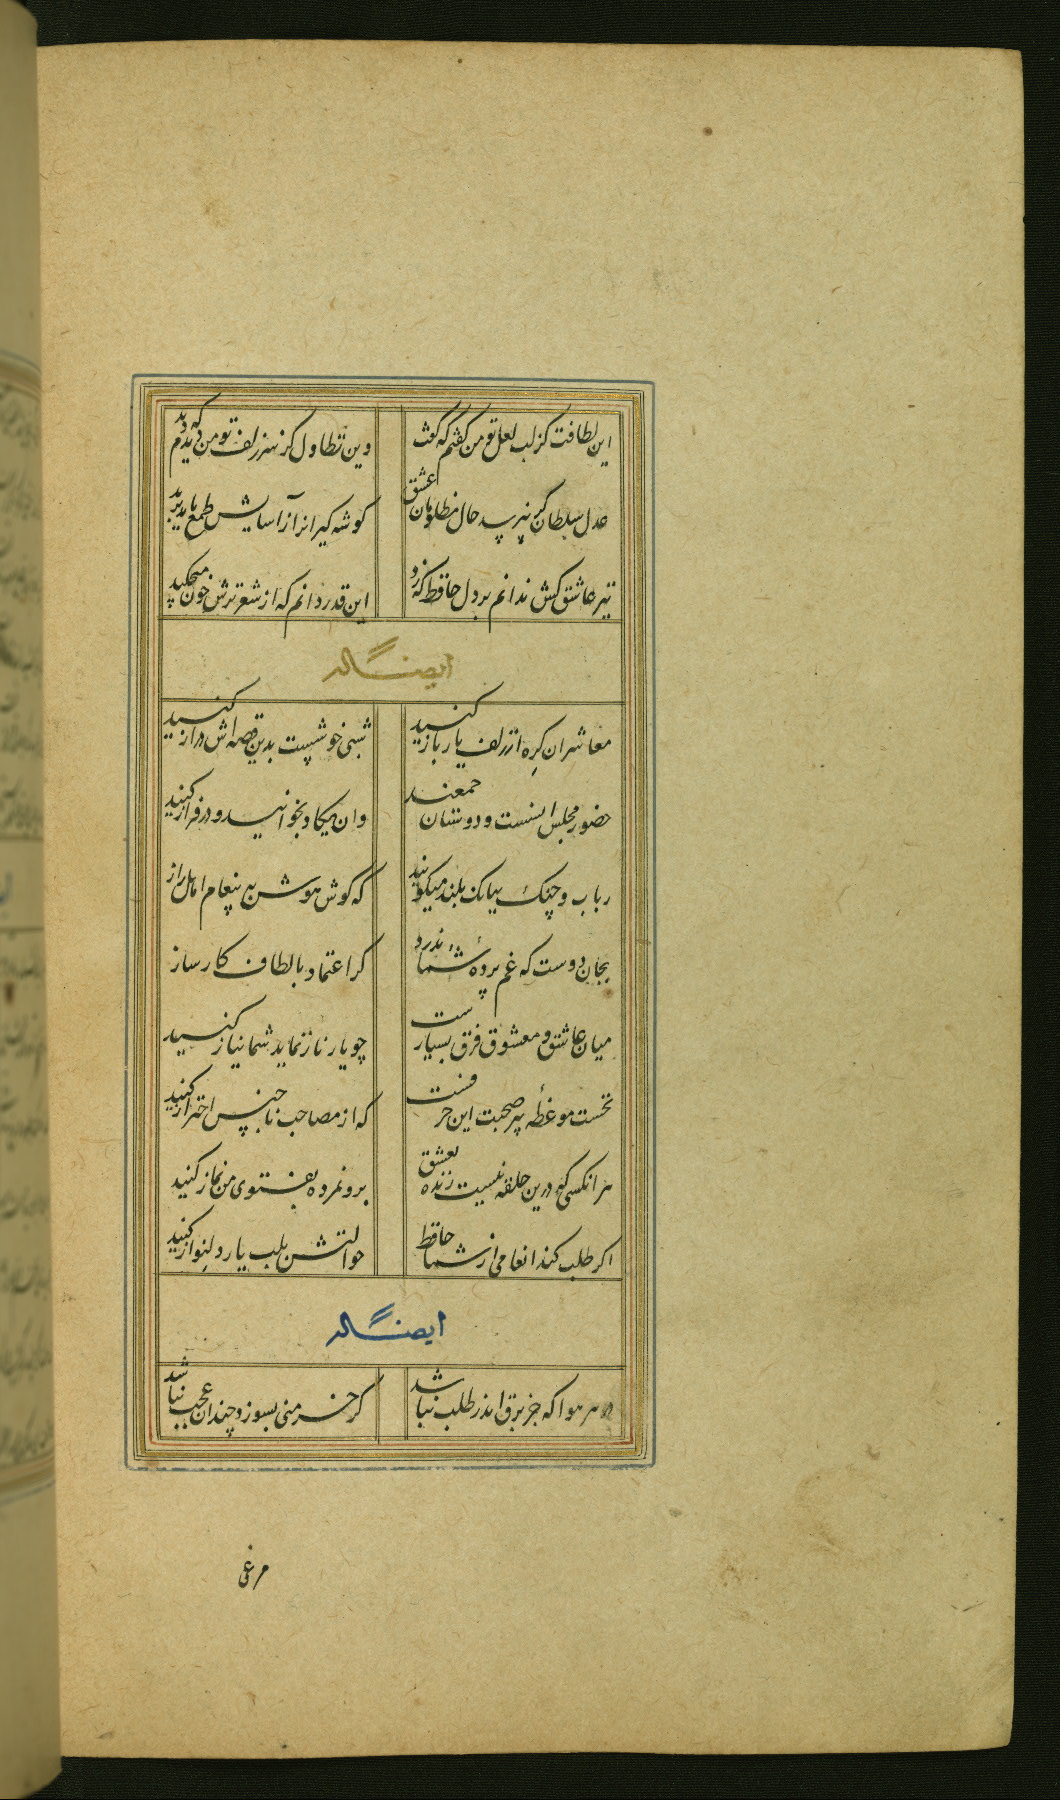 این لطافت کز لب لعل تو من گفتم که گفت وین تطاول کز سر زلف تو من دیدم که دید
عدل سلطان گر نپرسد حال مظلومان عشق گوشه گیرانرا ز آسایش طمع باید برید
تیر عاشق کش ندانم بر دل حافظ که زد این قدر دانم که از شعر ترش خون میچکید
ایضاله
معاشران گره از زلف یار باز کنید شبی خوشست بدین قصه اش دراز کنید
حضور مجلس انسست و دوستان جمعند وان یکاد بخوانید و در فراز کنید
رباب و چنک ببانک بلند میگویند که گوش هوش به پیغام اهل راز
بجان دوست که غم پردهٔ شما ندرد گر اعتماد بالطاف کارساز
میان عاشق و معشوق فرق بسیارست چو یار ناز نماید شما نیاز کنید
نخست موعظه پیر صحبت این حرفست که از مصاحب ناجنس احتراز کنید
هر انکسی که درین حلقه نیست زنده بعشق برو نمرده بفتوی من نماز کنید
اگر طلب کند انعامی از شما حافظ حوالتش بلب یار دلنواز کنید
ایضاله
در هر هوا که جز برق اندر طلب نباشد گر خرمنی بسوزد چندان عجب نباشد
مرغی